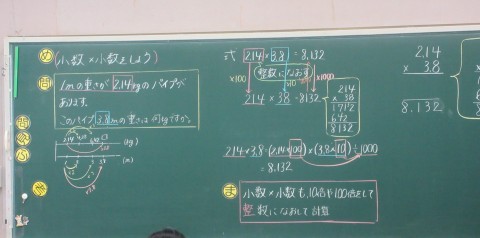 め 小数×小数をしよう
問 1mの重さが2.14kgのパイプが
あります。
このパイプ3.8mの重さは何kgですか。
2.14
(kg)
(m)
式 2.14 × 3.8 = 8.132
×100
整数になおす
×10
×1000
214 × 38 = 8132
214
× 38
1712
642
8132
2.14×3.8=(2.14×100)×(3.8×10)÷1000
=8.132
ま 小数×小数も、10倍や100倍をして
整数になおして計算
2.14
× 3.8
8.132